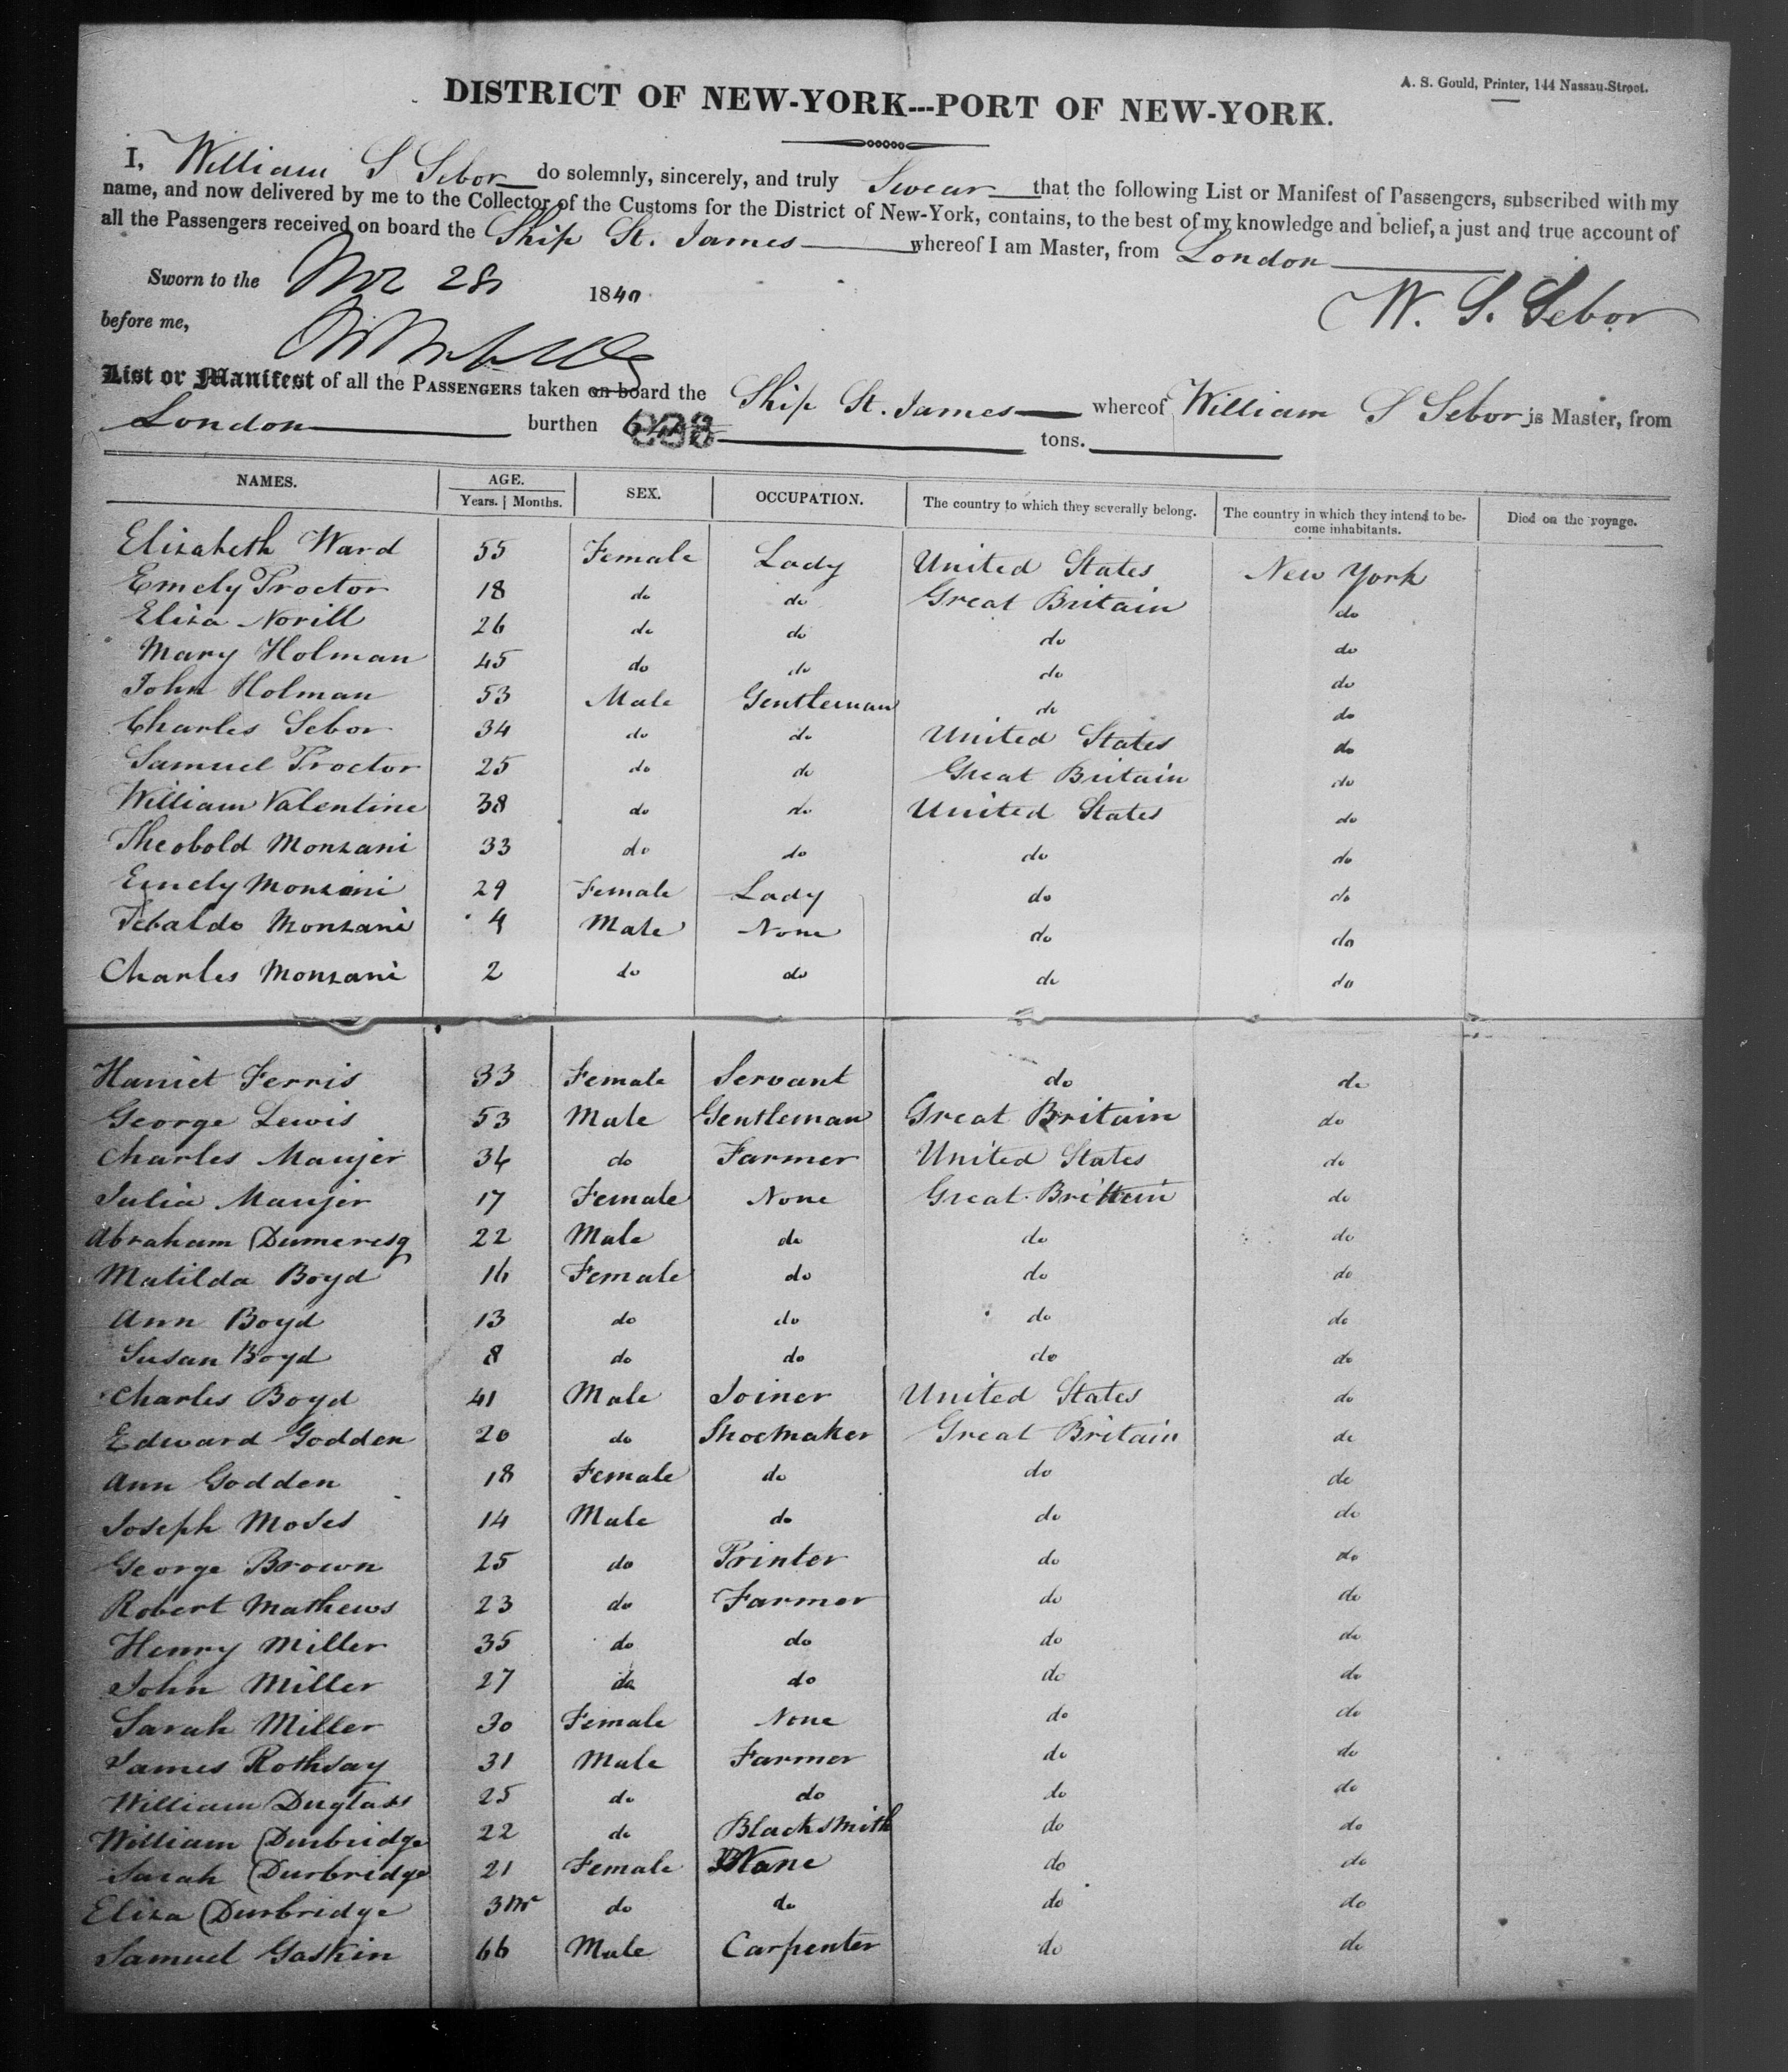 A. S. Gould, Printer, 144 Nassau-Street.
DISTRICT OF NEW-YORK---PORT OF NEW-YORK.
I, William S Sebor do solemnly, sincerely, and truly Swear that the following List or Manifest of Passengers, subscribed with my
name, and now delivered by me to the Collector of the Customs for the District of New-York, contains, to the best of my knowledge and belief, a just and true account of
all the Passengers received on board the Ship St. James whereof I am Master, from London
Sworn to the Nov 28 1840
W. S. Sebor
before me,
List or Manifest of all the PASSENGERS taken on board the Ship St. James whereof William S Sebor is Master, from
London burthen tons.
NAMES. AGE. SEX. OCCUPATION. The country to which they severally belong. The country in which they intend to be- Died on the voyage.
Years. Months. come inhabitants.
Elizabeth Ward 55 Female Lady United States New York
Emely Proctor 18 do do Great Britain do
Eliza Norill 26 do do do do
Mary Holman 45 do do do do
John Holman 53 Male Gentleman do do
Charles Sebor 34 do do United States do
Samuel Proctor 25 do do Great Britain do
William Valentine 38 do do United States do
Theobold Monzani 33 do do do do
Emely Monzani 29 Female Lady do do
Tebaldo Monzani 4 Male None do do
Charles Monzani 2 do do do do
Harriet Ferris 33 Female Servant do do
George Lewis 53 Male Gentleman Great Britain do
Charles Maujer 34 do Farmer United States do
Julia Maujer 17 Female None Great Brittain do
Abraham Dumeresq 22 Male do do do
Matilda Boyd 16 Female do do do
Ann Boyd 13 do do do do
Susan Boyd 8 do do do do
Charles Boyd 41 Male Joiner United States do
Edward Godden 20 do Shoemaker Great Britain do
Ann Godden 18 Female do do do
Joseph Moses 14 Male do do do
George Brown 25 do Printer do do
Robert Mathews 23 do Farmer do do
Henry Miller 35 do do do do
John Miller 27 do do do do
Sarah Miller 30 Female None do do
James Rothsay 31 Male Farmer do do
William Duglass 25 do do do do
William Durbridge 22 do Blacksmith do do
Sarah Durbridge 21 Female None do do
Eliza Durbridge 3 mo do do do do
Samuel Gaskin 66 Male Carpenter do do